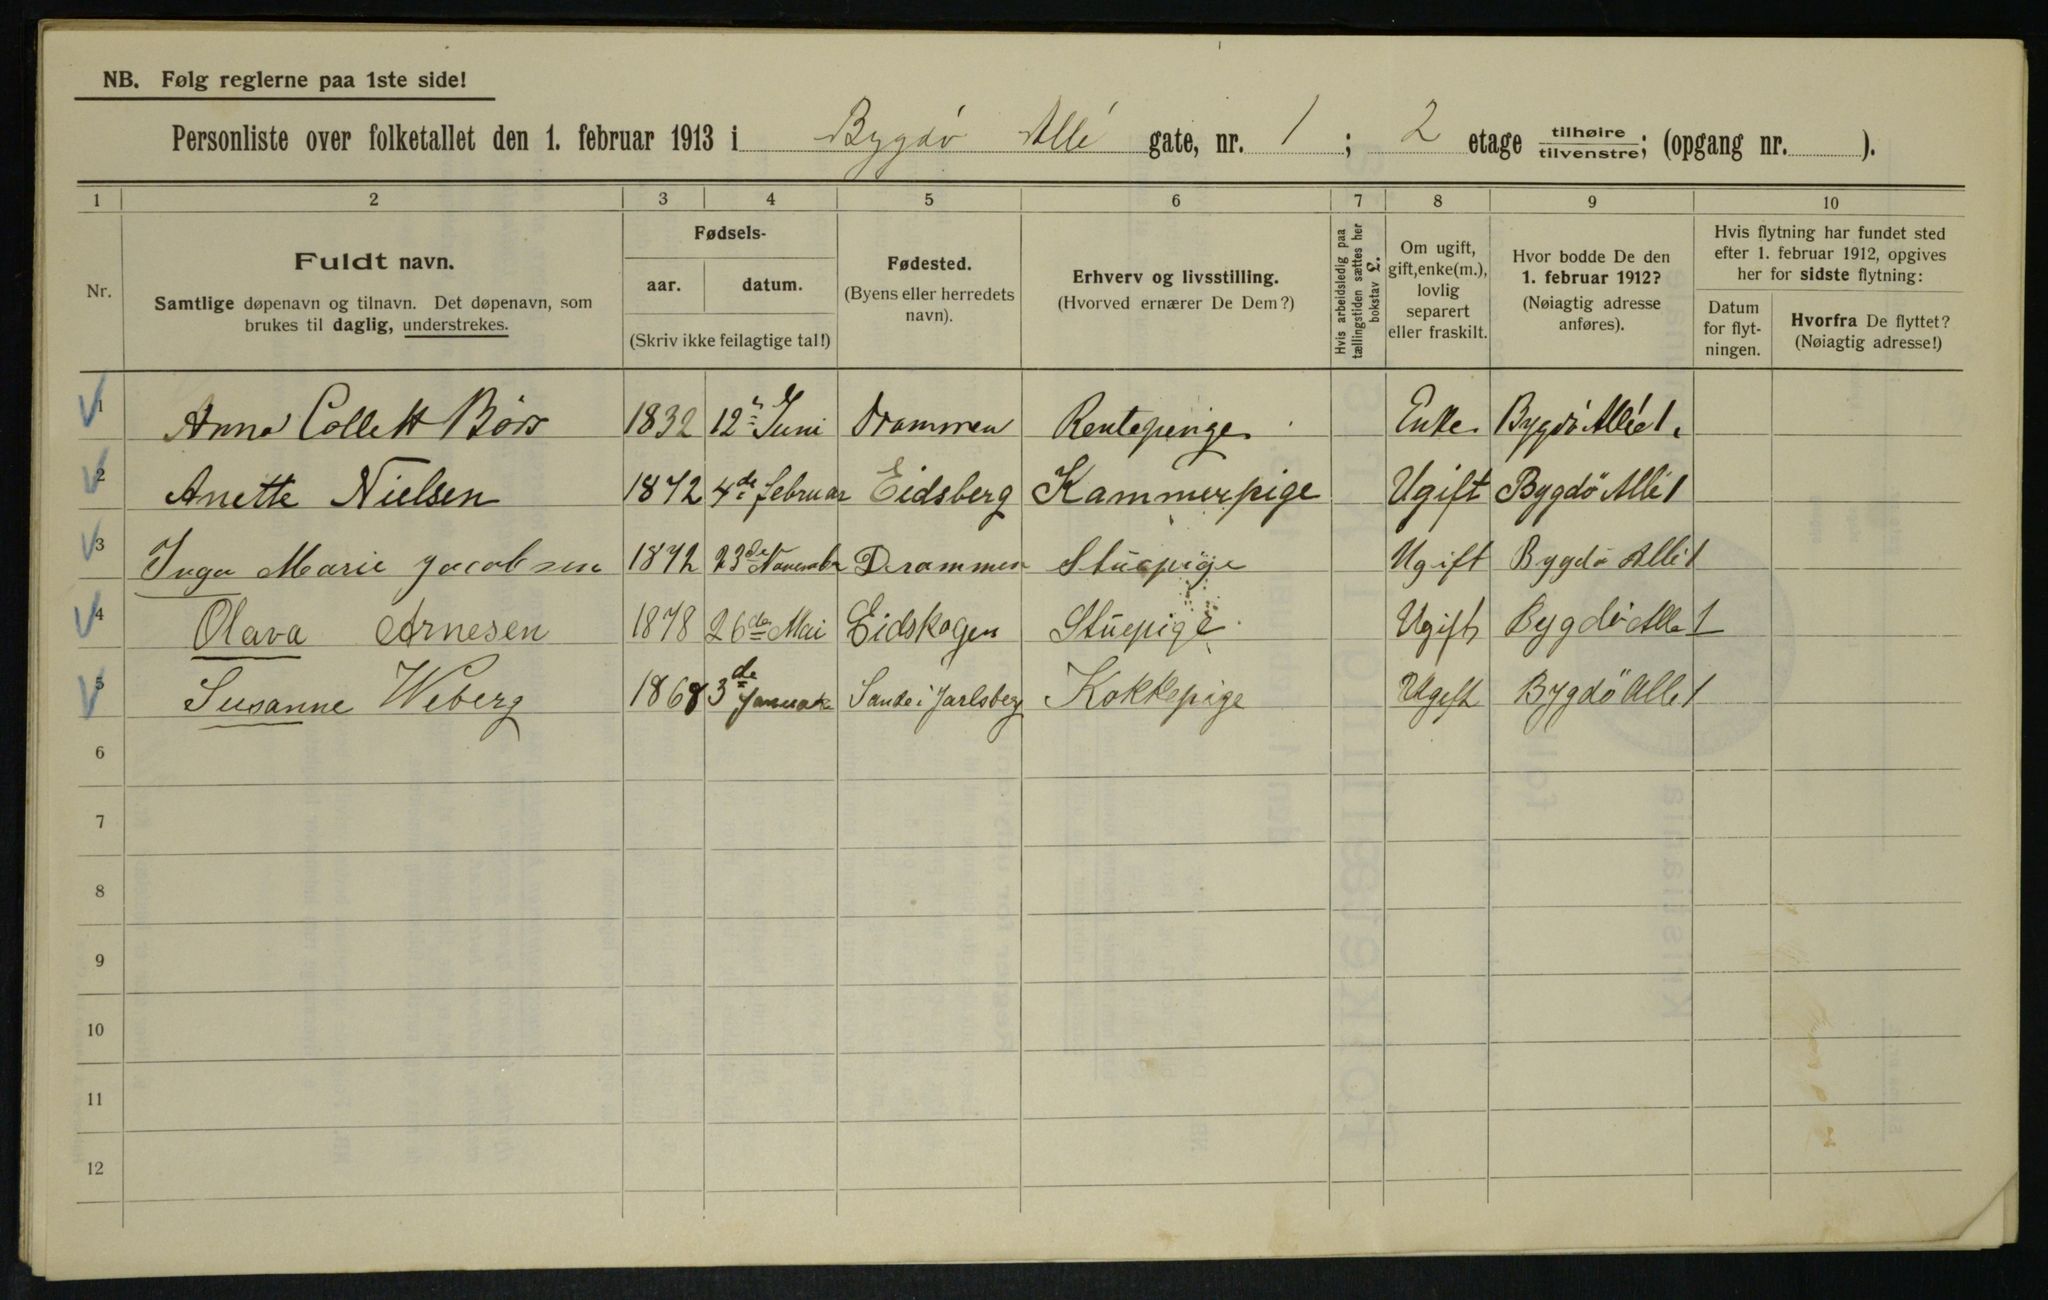 NB. Følg reglerne paa 1ste side!
Personliste over folketallet den 1. februar 1913 i Bygdø Allé gate, nr. 1 ; 2 etage tilhøire/tilvenstre; (opgang nr. ).
1 2 3 4 5 6 7 8 9 10
Nr.
Fuldt navn.
Samtlige døpenavn og tilnavn. Det døpenavn, som
brukes til daglig, understrekes.
Fødsels-
aar. datum.
(Skriv ikke feilagtige tal!)
Fødested.
(Byens eller herredets
navn).
Erhverv og livsstilling.
(Hvorved ernærer De Dem?)
Hvis arbeidsledig paa
tællingstiden sættes her
bokstav L.
Om ugift,
gift, enke(m.),
lovlig
separert
eller fraskilt.
Hvor bodde De den
1. februar 1912?
(Nøiagtig adresse
anføres).
Hvis flytning har fundet sted
efter 1. februar 1912, opgives
her for sidste flytning:
Datum
for flyt-
ningen.
Hvorfra De flyttet?
(Nøiagtig adresse!)
1 Anna Collett Børs 1832 12te Juni Drammen Rentepenge Enke. Bygdø Allé 1.
2 Anette Nielsen 1872 4de februar Eidsberg Kammerpige Ugift Bygdø Allé 1
3 Inga Marie Jacobsen 1872 23de November Drammen Stuepige Ugift Bygdø Allé 1
4 Olava Arnesen 1878 26de Mai Eidskogen Stuepige Ugift Bygdø Alle 1
5 Susanne Weberg 1868 3de Januar Sande i Jarlsberg Kokkepige Ugift Bygdø Alle 1
6
7
8
9
10
11
12